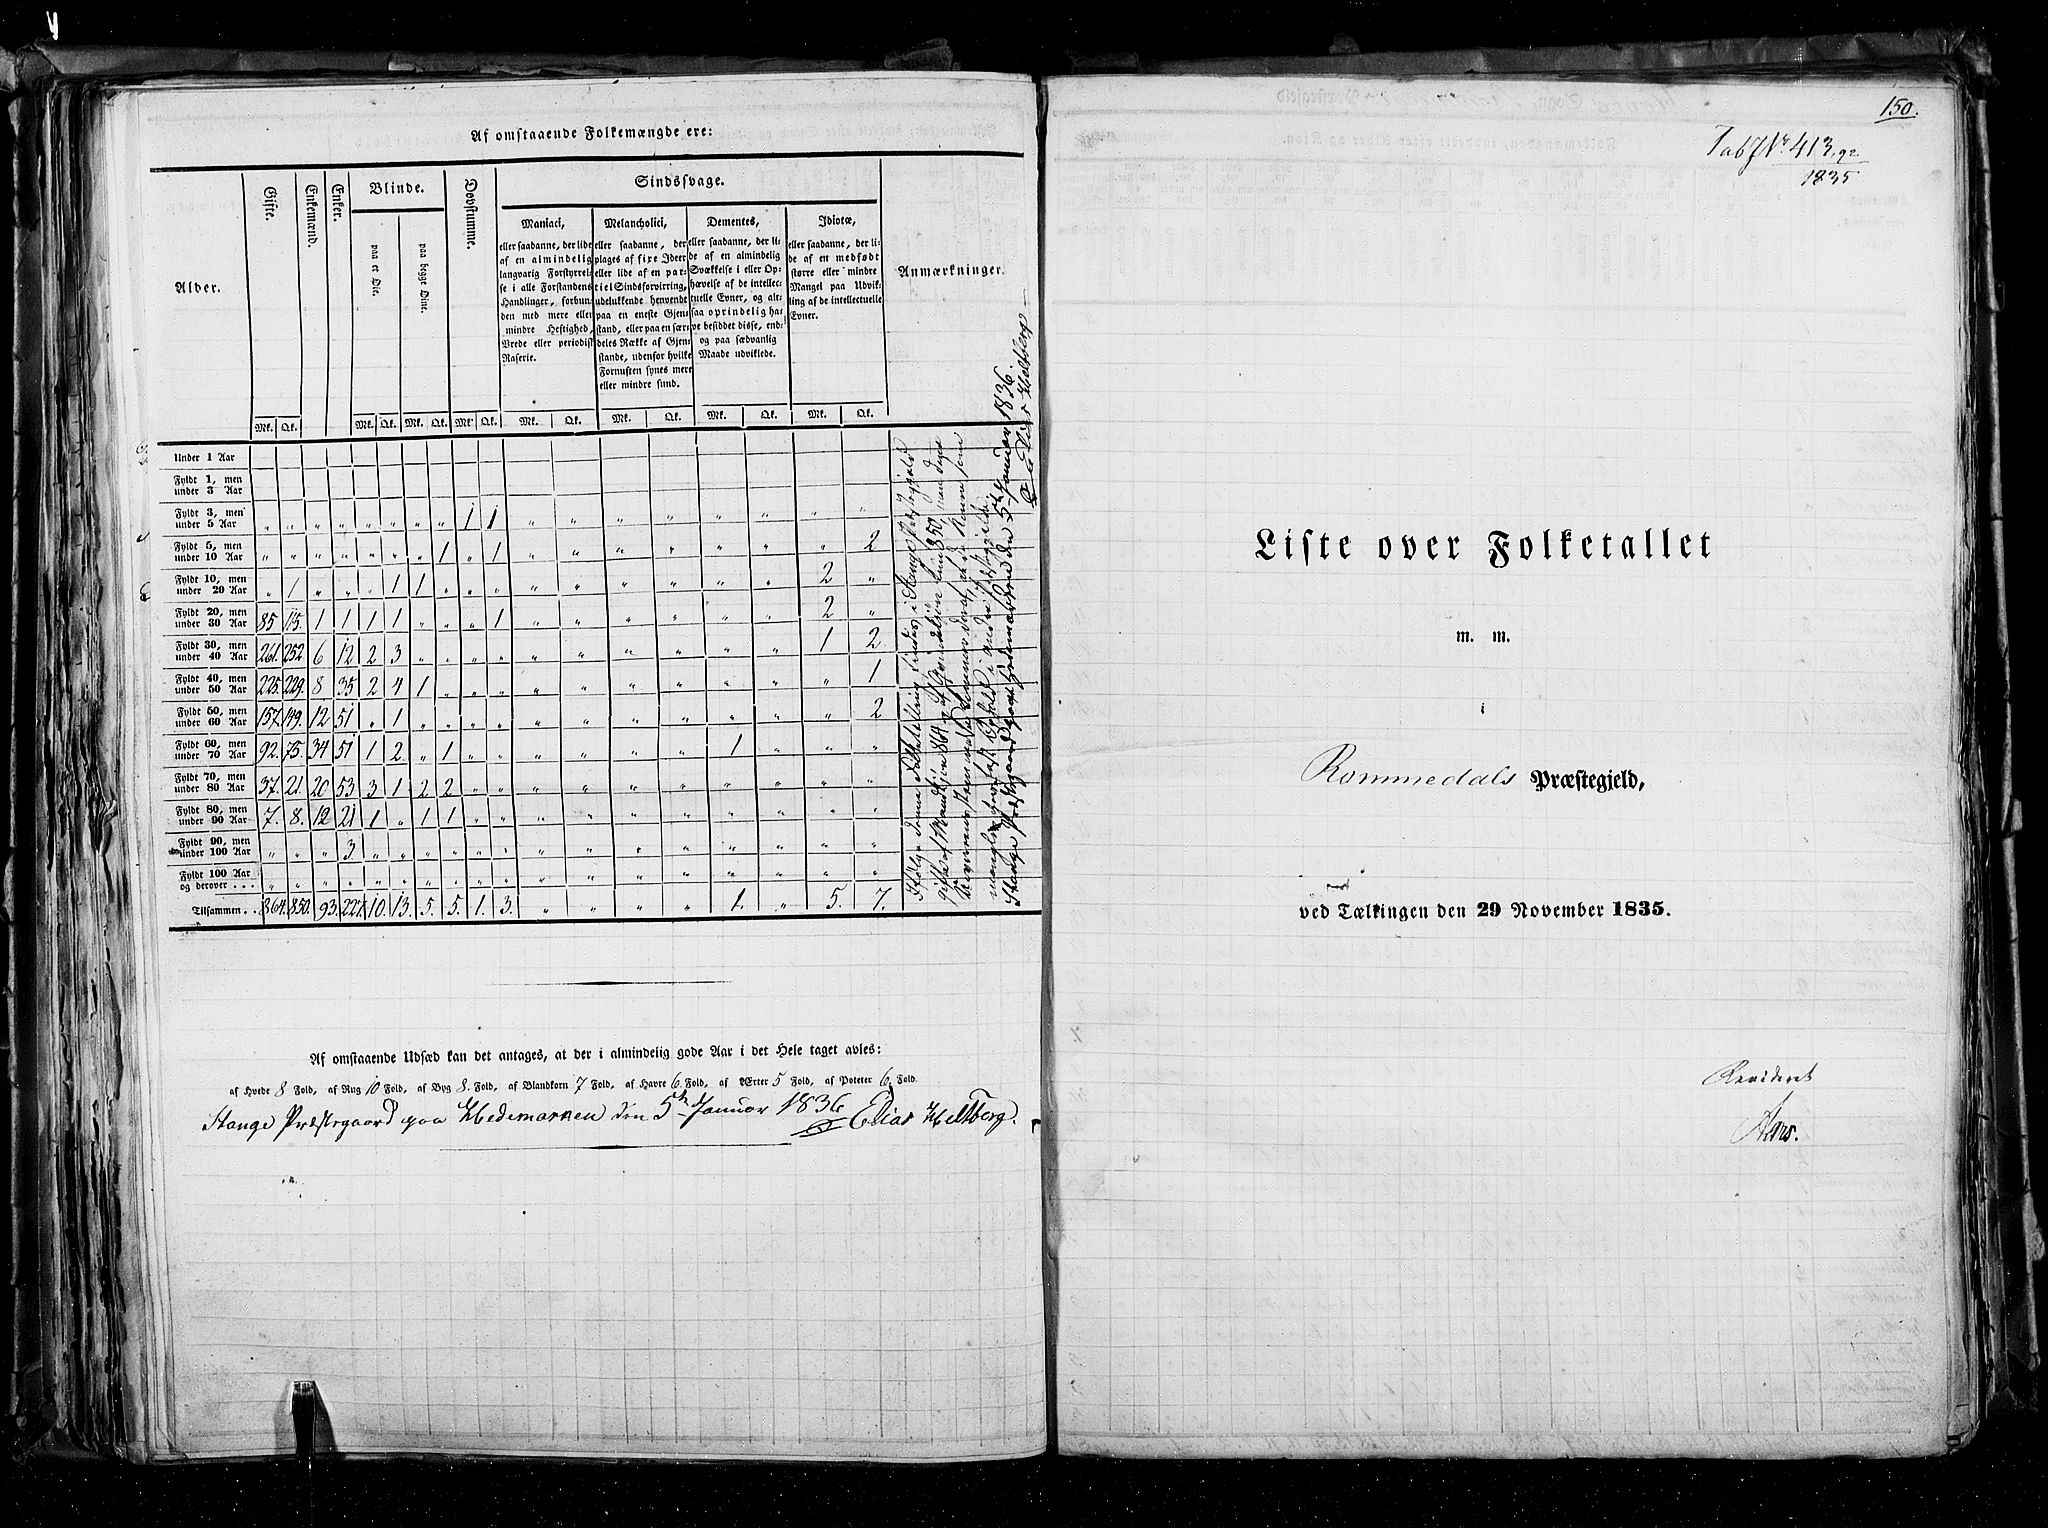 Af omstaaende Folkemængde ere:
Alder. Gifte. Enkemænd. Enker. Blinde. Døvstumme. Sindssvage. Anmærkninger.
paa et Øie. paa begge Øine.
Maniaci,
eller saadanne, der lide
af en almindelig
langvarig Forstyrrel-
se i alle Forstandens
Handlinger, forbun-
den med mere eller
mindre Heftighed,
Vrede eller periodisk
Raserie.
Melancholici,
eller saadanne, der
plages af fixe Ideer
eller lide af en par-
tiel Sindsforvirring,
udelukkende henvendt
paa en eneste Gjen-
stand, eller paa en sær-
deles Række af Gjen-
stande, udenfor hvilke
Fornuften synes mere
eller mindre sund.
Dementes,
eller saadanne, der li-
de af en almindelig
Svækkelse i eller Op-
hævelse af de intellec-
tuelle Evner, og al-
saa oprindelig ha-
ve besiddet disse, end-
og paa sædvanlig
Maade udviklede.
Idiotæ,
eller saadanne, der li-
de af en medfødt
større eller mindre
Mangel paa Udvik-
ling af de intellectuelle
Evner.
Mk. Qk. Mk. Qk. Mk. Qk. Mk. Qk. Mk. Qk. Mk. Qk. Mk. Qk. Mk. Qk.
Under 1 Aar
Fyldt 1, men
under 3 Aar
Fyldt 3, men
under 5 Aar „ „ „ „ „ „ „ „ 1 1 „ „ „ „ „ „ „ „
Fyldt 5, men
under 10 Aar „ „ „ „ „ „ „ 1 „ 1 „ „ „ „ „ „ „ 2
Fyldt 10, men
under 20 Aar „ 1 „ „ „ 1 1 „ „ „ „ „ „ „ „ „ 2 „
Fyldt 20, men
under 30 Aar 85 115. 1 1 1 1 „ „ „ 1 „ „ „ „ „ „ 2 „
Fyldt 30, men
under 40 Aar 261. 252 6 12 2 3 „ „ „ „ „ „ „ „ „ „ 1 2
Fyldt 40, men
under 50 Aar 225. 229. 8 35 2 4 1 „ „ „ „ „ „ „ „ „ „ 1
Fyldt 50, men
under 60 Aar 157. 149. 12 51 „ 1 „ „ „ „ „ „ „ „ „ „ „ 2
Fyldt 60, men
under 70 Aar 92. 75. 34 51 1 2 „ 1 „ „ „ „ „ „ 1 „ „ „
Fyldt 70, men
under 80 Aar 37. 21. 20 53 3 1 2 2 „ „ „ „ „ „ „ „ „ „
Fyldt 80, men
under 90 Aar 7. 8. 12 21 1 „ 1 1 „ „ „ „ „ „ „ „ „ „
Fyldt 90, men
under 100 Aar „ „ „ 3 „ „ „ „ „ „ „ „ „ „ „ „ „ „
Fyldt 100 Aar
og derover „ „ „ „ „ „ „ „ „ „ „ „ „ „ „ „ „ „
Tilsammen 864. 850. 93. 227. 10. 13. 5. 5. 1. 3. „ „ „ „ 1. „ 5. 7.
Ifølge denne Folketælling findes i Stange Præstegjeld
gifte af Mandkjøn 864 og af Qvindekjøn kun 850,
Stange Præstegaard paa Hedemarken den 5te Januar 1836.
Elias Heltberg
Af omstaaende Udsæd kan det antages, at der i almindelig gode Aar i det Hele taget avles:
af Hvede 8 Fold, af Rug 10 Fold, af Byg 8. Fold, af Blandkorn 7 Fold, af Havre 6 Fold, af Ærter 5 Fold, af Poteter 6. Fold.
Stange Præstegaard paa Hedemarken den 5te Januar 1836 Elias Heltberg.
150.
Tab 7 Nr 413.
1835
Liste over Folketallet
m. m.
i
Rommedals Præstegjeld,
ved Tælkingen den 29 November 1835.
Revideret
Aars.